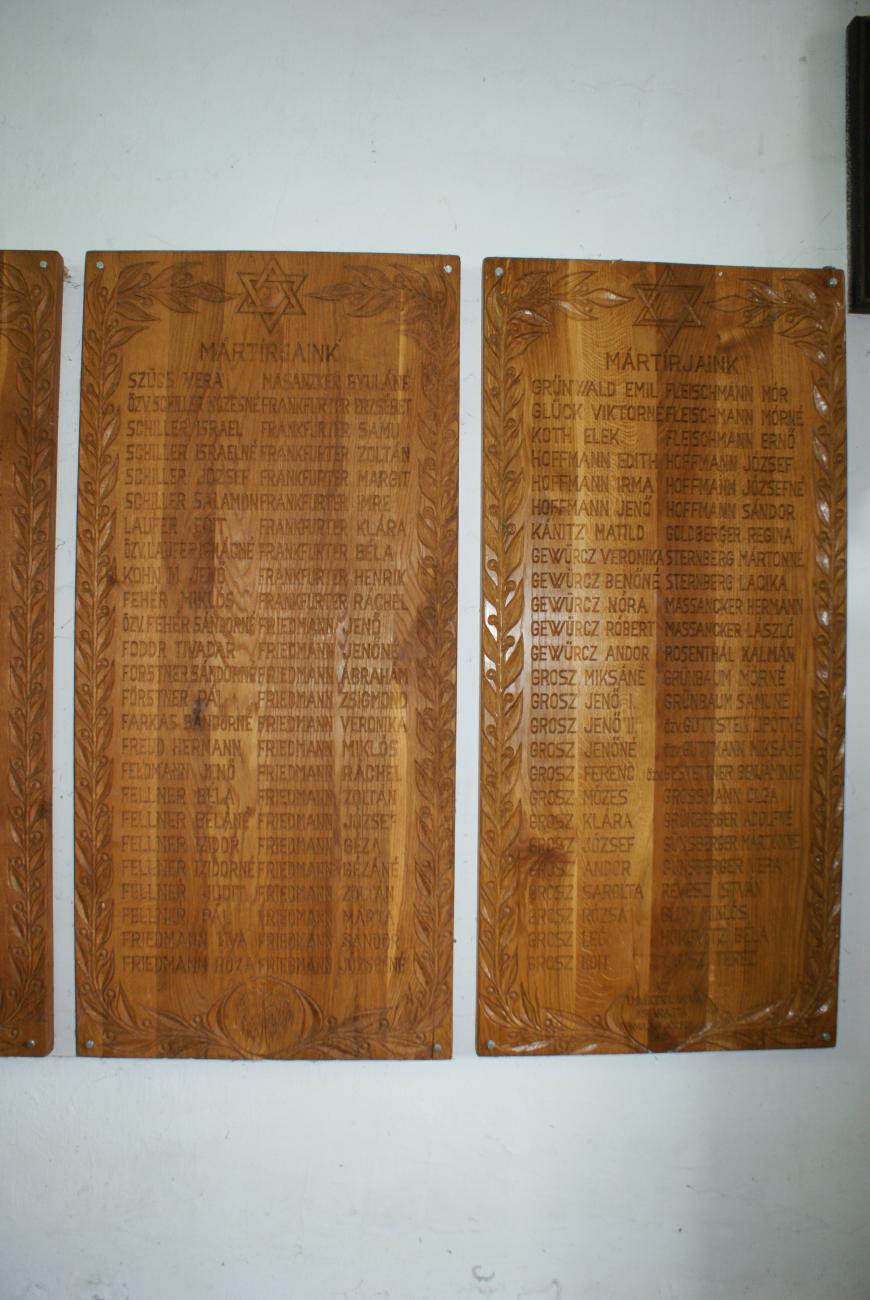 MÁRTÍRJAINK
SZÜCS VERA MASANZKER GYULÁNÉ
ÖZV. SCHILLER MÓZESNÉ FRANKFURTER ERZSÉBET
SCHILLER ISRAEL FRANKFURTER SAMU
SCHILLER ISRAELNÉ FRANKFURTER ZOLTÁN
SCHILLER JÓZSEF FRANKFURTER MARGIT
SCHILLER SALAMON FRANKFURTER IMRE
LAUFER EDIT FRANKFURTER KLÁRA
ÖZV. LAUFER IGNÁCNÉ FRANKFURTER BÉLA
KOHN M. JENŐ FRANKFURTER HENRIK
FEHÉR MIKLÓS FRANKFURTER RÁCHEL
ÖZV. FEHÉR SÁNDORNÉ FRIEDMANN JENŐ
FODOR TIVADAR FRIEDMANN JENŐNÉ
FÖRSTNER SÁNDORNÉ FRIEDMANN ÁBRAHÁM
FÖRSTNER PÁL FRIEDMANN ZSIGMOND
FARKAS SÁNDORNÉ FRIEDMANN VERONIKA
FREUD HERMANN FRIEDMANN MIKLÓS
FELDMANN JENŐ FRIEDMANN RÁCHEL
FELLNER BÉLA FRIEDMANN ZOLTÁN
FELLNER BÉLÁNÉ FRIEDMANN JÓZSEF
FELLNER IZIDOR FRIEDMANN GÉZA
FELLNER IZIDORNÉ FRIEDMANN GÉZÁNÉ
FELLNER JUDIT FRIEDMANN ZOLTÁN
FELLNER PÁL FRIEDMANN MÁRTA
FRIEDMANN ÉVA FRIEDMANN SÁNDOR
FRIEDMANN RÓZA FRIEDMANN JÓZSEFNÉ
MÁRTÍRJAINK
GRÜNWALD EMIL FLEISCHMANN MÓR
GLÜCK VIKTORNÉ FLEISCHMANN MÓRNÉ
KOTH ELEK FLEISCHMANN ERNŐ
HOFFMANN EDITH HOFFMANN JÓZSEF
HOFFMANN IRMA HOFFMANN JÓZSEFNÉ
HOFFMANN JENŐ HOFFMANN SÁNDOR
KÁNITZ MATILD GOLDBERGER REGINA
GEWÜRCZ VERONIKA STERNBERG MÁRTONNÉ
GEWÜRCZ BENŐNÉ STERNBERG LACIKA
GEWÜRCZ NÓRA MASSANCKER HERMANN
GEWÜRCZ RÓBERT MASSANCKER LÁSZLÓ
GEWÜRCZ ANDOR ROSENTHÁL KÁLMÁN
GROSZ MIKSÁNÉ GRÜNBAUM MÓRNÉ
GROSZ JENŐ I. GRÜNBAUM SAMUNÉ
GROSZ JENŐ II. özv. LIPÓTNÉ
GROSZ JENŐNÉ özv. GUTTMANN MIKSÁNÉ
GROSZ FERENC özv. GESTETTNER BENJAMINNÉ
GROSZ MÓZES GROSSMANN OLGA
GROSZ KLÁRA GRÜNBERGER ADOLFNÉ
GROSZ JÓZSEF GÜNSBERGER MÁRTONNÉ
GROSZ ANDOR GÜNSBERGER VERA
GROSZ SAROLTA RÉVÉSZ ISTVÁN
GROSZ RÓZSA BLUM MIKLÓS
GROSZ LEÓ HOROVITZ BÉLA
GROSZ EDIT TERÉZ